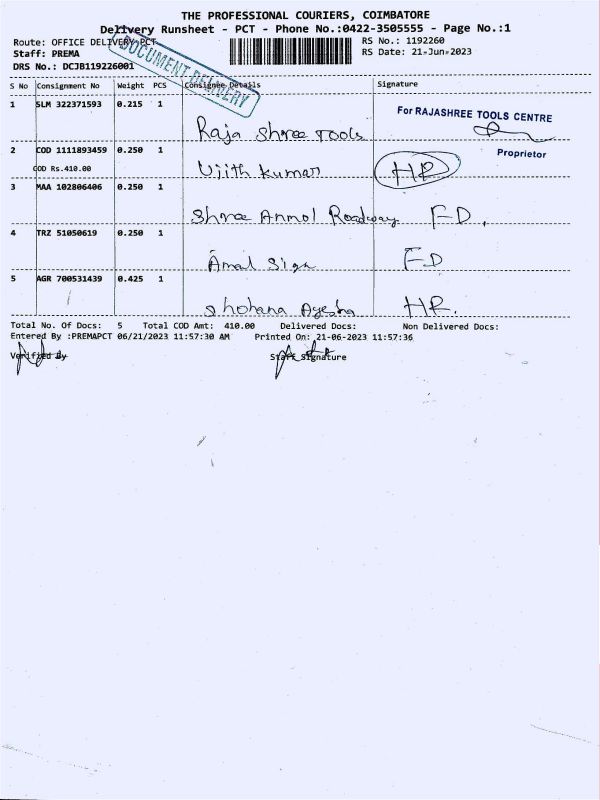 THE PROFESSIONAL COURIERS, COIMBATORE
Delivery Runsheet - PCT - Phone No.:0422-3505555 - Page No.:1
Route: OFFICE DELIVERY PCT
RS No.: 1192260
Staff: PREMA
RS Date: 21-Jun-2023
DRS No.: DCJB119226001
DOCUMENT DELIVERY
S No Consignment No Weight PCS Consignee Details Signature
1 SLM 322371593 0.215 1
For RAJASHREE TOOLS CENTRE
Raja Shree Tools
Proprietor
2 COD 1111893459 0.250 1
COD Rs.410.00
Vijith kumar HR
3 MAA 102806406 0.250 1
Shree Anmol Roadway FD.
4 TRZ 51050619 0.250 1
Amal Sign FD
5 AGR 700531439 0.425 1
Shohana Ayesha HR.
Total No. Of Docs: 5 Total COD Amt: 410.00 Delivered Docs: Non Delivered Docs:
Entered By :PREMAPCT 06/21/2023 11:57:30 AM Printed On: 21-06-2023 11:57:36
Verified By Staff Signature